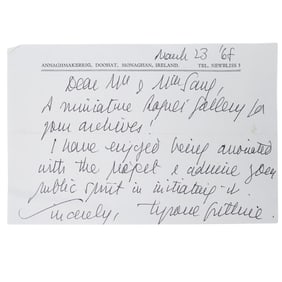 March 23 '68
ANNAGHMAKERRIG, DOOHAT, MONAGHAN, IRELAND. TEL. NEWBLISS 3
Dear Mr & Mrs Lang,
A miniature Rogues Gallery for
your archives!
I have enjoyed being associated
with the project & admire your
public spirit in initiating it.
Sincerely, Tyrone Guthrie.